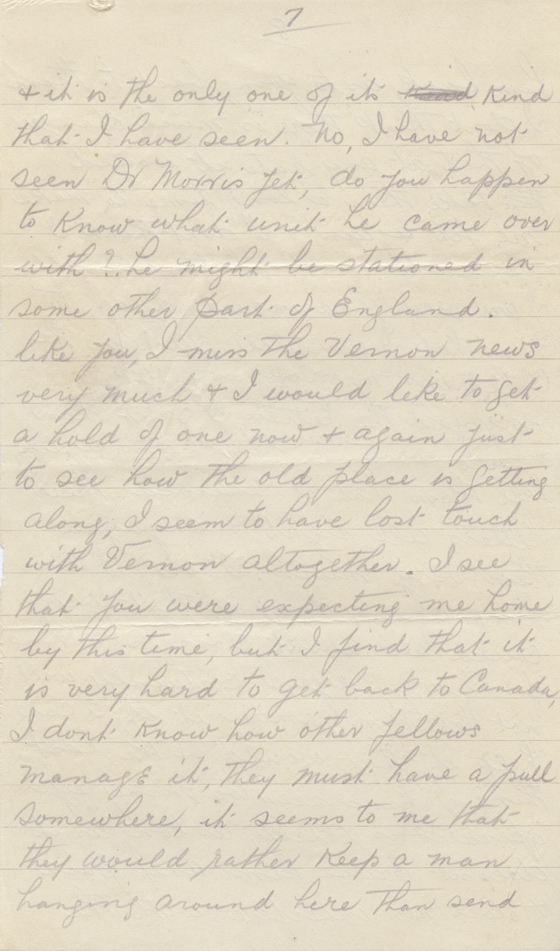 7
& it is the only one of its kind kind
that I have seen. No, I have not
seen Dr Morris yet, do you happen
to know what unit he came over
with? he might be stationed in
some other part of England.
like you, I miss the Vernon news
very much & I would like to get
a hold of one now & again just
to see how the old place is getting
along, I seem to have lost touch
with Vernon altogether. I see
that you were expecting me home
by this time, but I find that it
is very hard to get back to Canada,
I dont know how other fellows
manage it, they must have a pull
somewhere, it seems to me that
they would rather keep a man
hanging around here than send